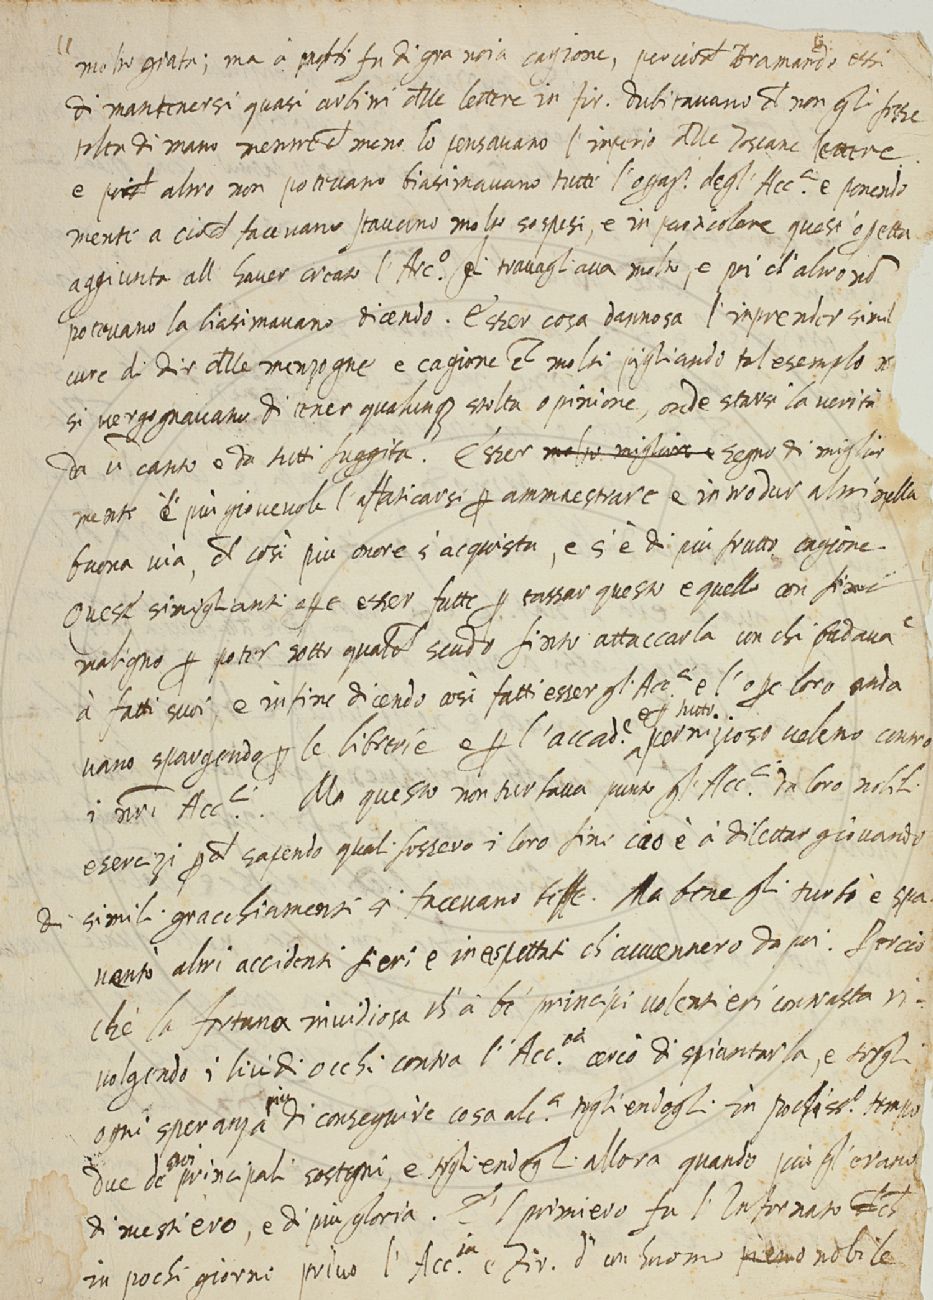 molto grata; ma à molti fu di gra noia cagione, percioch̃ bramando essi
di mantenersi quasi arbitri dlle lettere in fir. dubitavano ch̃ non gli fosse
tolto di mano mentrech̃ meno lo pensavano l'imperio dlle Toscane lettere.
e poich̃ altro non potevano biasimavano tutte l'opaz.ⁱ degl'Acc.ⁱ e ponendo
mente a cioch̃ facevano stavano molto sospesi, e in particolare quest'opetta
aggiunta all haver creato l'Arc.º gli travagliava molto, e poi ch'altro nõ
potevano la biasimavano dicendo. Esser cosa dannosa l'imprender simil
cure di dir dlle menzogne e cagione ch̃ molti pigliando tal esempio n
si vergognavano di tener qualunq stolta opinione, onde starsi la verità
da ũ canto e da tutti fuggita. Esser molto migliore e segno di miglior
mente è più giovevole l'affaticarsi p ammaestrare e introdur altri nella
buona via, ch̃ così più onore s'acquista, e s'è di più frutto cagione.
Quest simiglianti ope esser fatte p tassar questo e quello con fine
maligno p poter sotto qualch̃ scudo finto attaccarla con chi badava
à fatti suoi, e infine dicendo così fatti esser gl'Acc.ⁱ e l'ope loro anda
vano spargendo p le librerie e p l'accad.ᵉ e p tutto pernizioso veleno contro
i nrĩ Acc.ⁱ. Ma questo non turbava punto gl'Acc.ⁱ da loro nobili
esercizi pch̃ sapendo quali fossero i loro fini cioè à dilettar giovando
di simili gracchiamenti si facevano beffe. Ma bene gli turbò e spa
ventò altri accidenti fieri e inespettati ch'avvennero da poi. Percio
chè la fortuna invidiosa ch'à bẽ principi volentieri contrasta ri-
volgendo i lividi occhi contra l'Acc.ⁱᵃ cercò di spiantarla, e torgli
ogni speranza più di conseguire cosa alc.ᵃ togliendogli in pochiss.º tempo
due de suoi principali sostegni, e togliendogli allora quando più gl'erano
di mestiero, e di più gloria. E'l primiero fu l'Infornato ch̃
in pochi giorni privò l'Acc.ⁱᵃ e Fir. d'un huomo pieno nobile